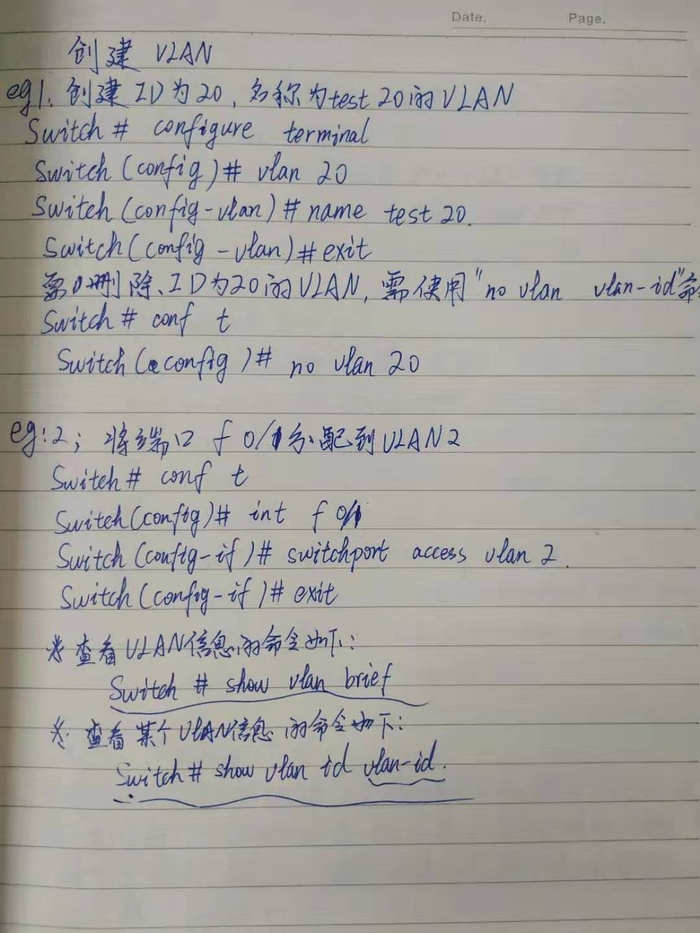 Date. Page.
创建 VLAN
eg1. 创建 ID为20, 名称为test 20的VLAN
Switch # configure terminal
Switch (config)# vlan 20
Switch (config-vlan)# name test 20.
Switch (config-vlan)# exit
要删除、ID为20的VLAN, 需使用"no vlan vlan-id"命
Switch # conf t
Switch (config)# no vlan 20
eg:2; 将端口 f 0/1分配到VLAN2
Switch# conf t
Switch(config)# int f 0/1
Switch (config-if)# switchport access vlan 2.
Switch (config-if)# exit
※ 查看VLAN信息的命令如下:
Switch # show vlan brief
※ 查看某个VLAN信息的命令如下:
Switch# show vlan id vlan-id.